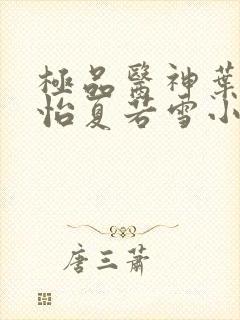 極品醫神葉
怡夏若雪小
唐三蕭